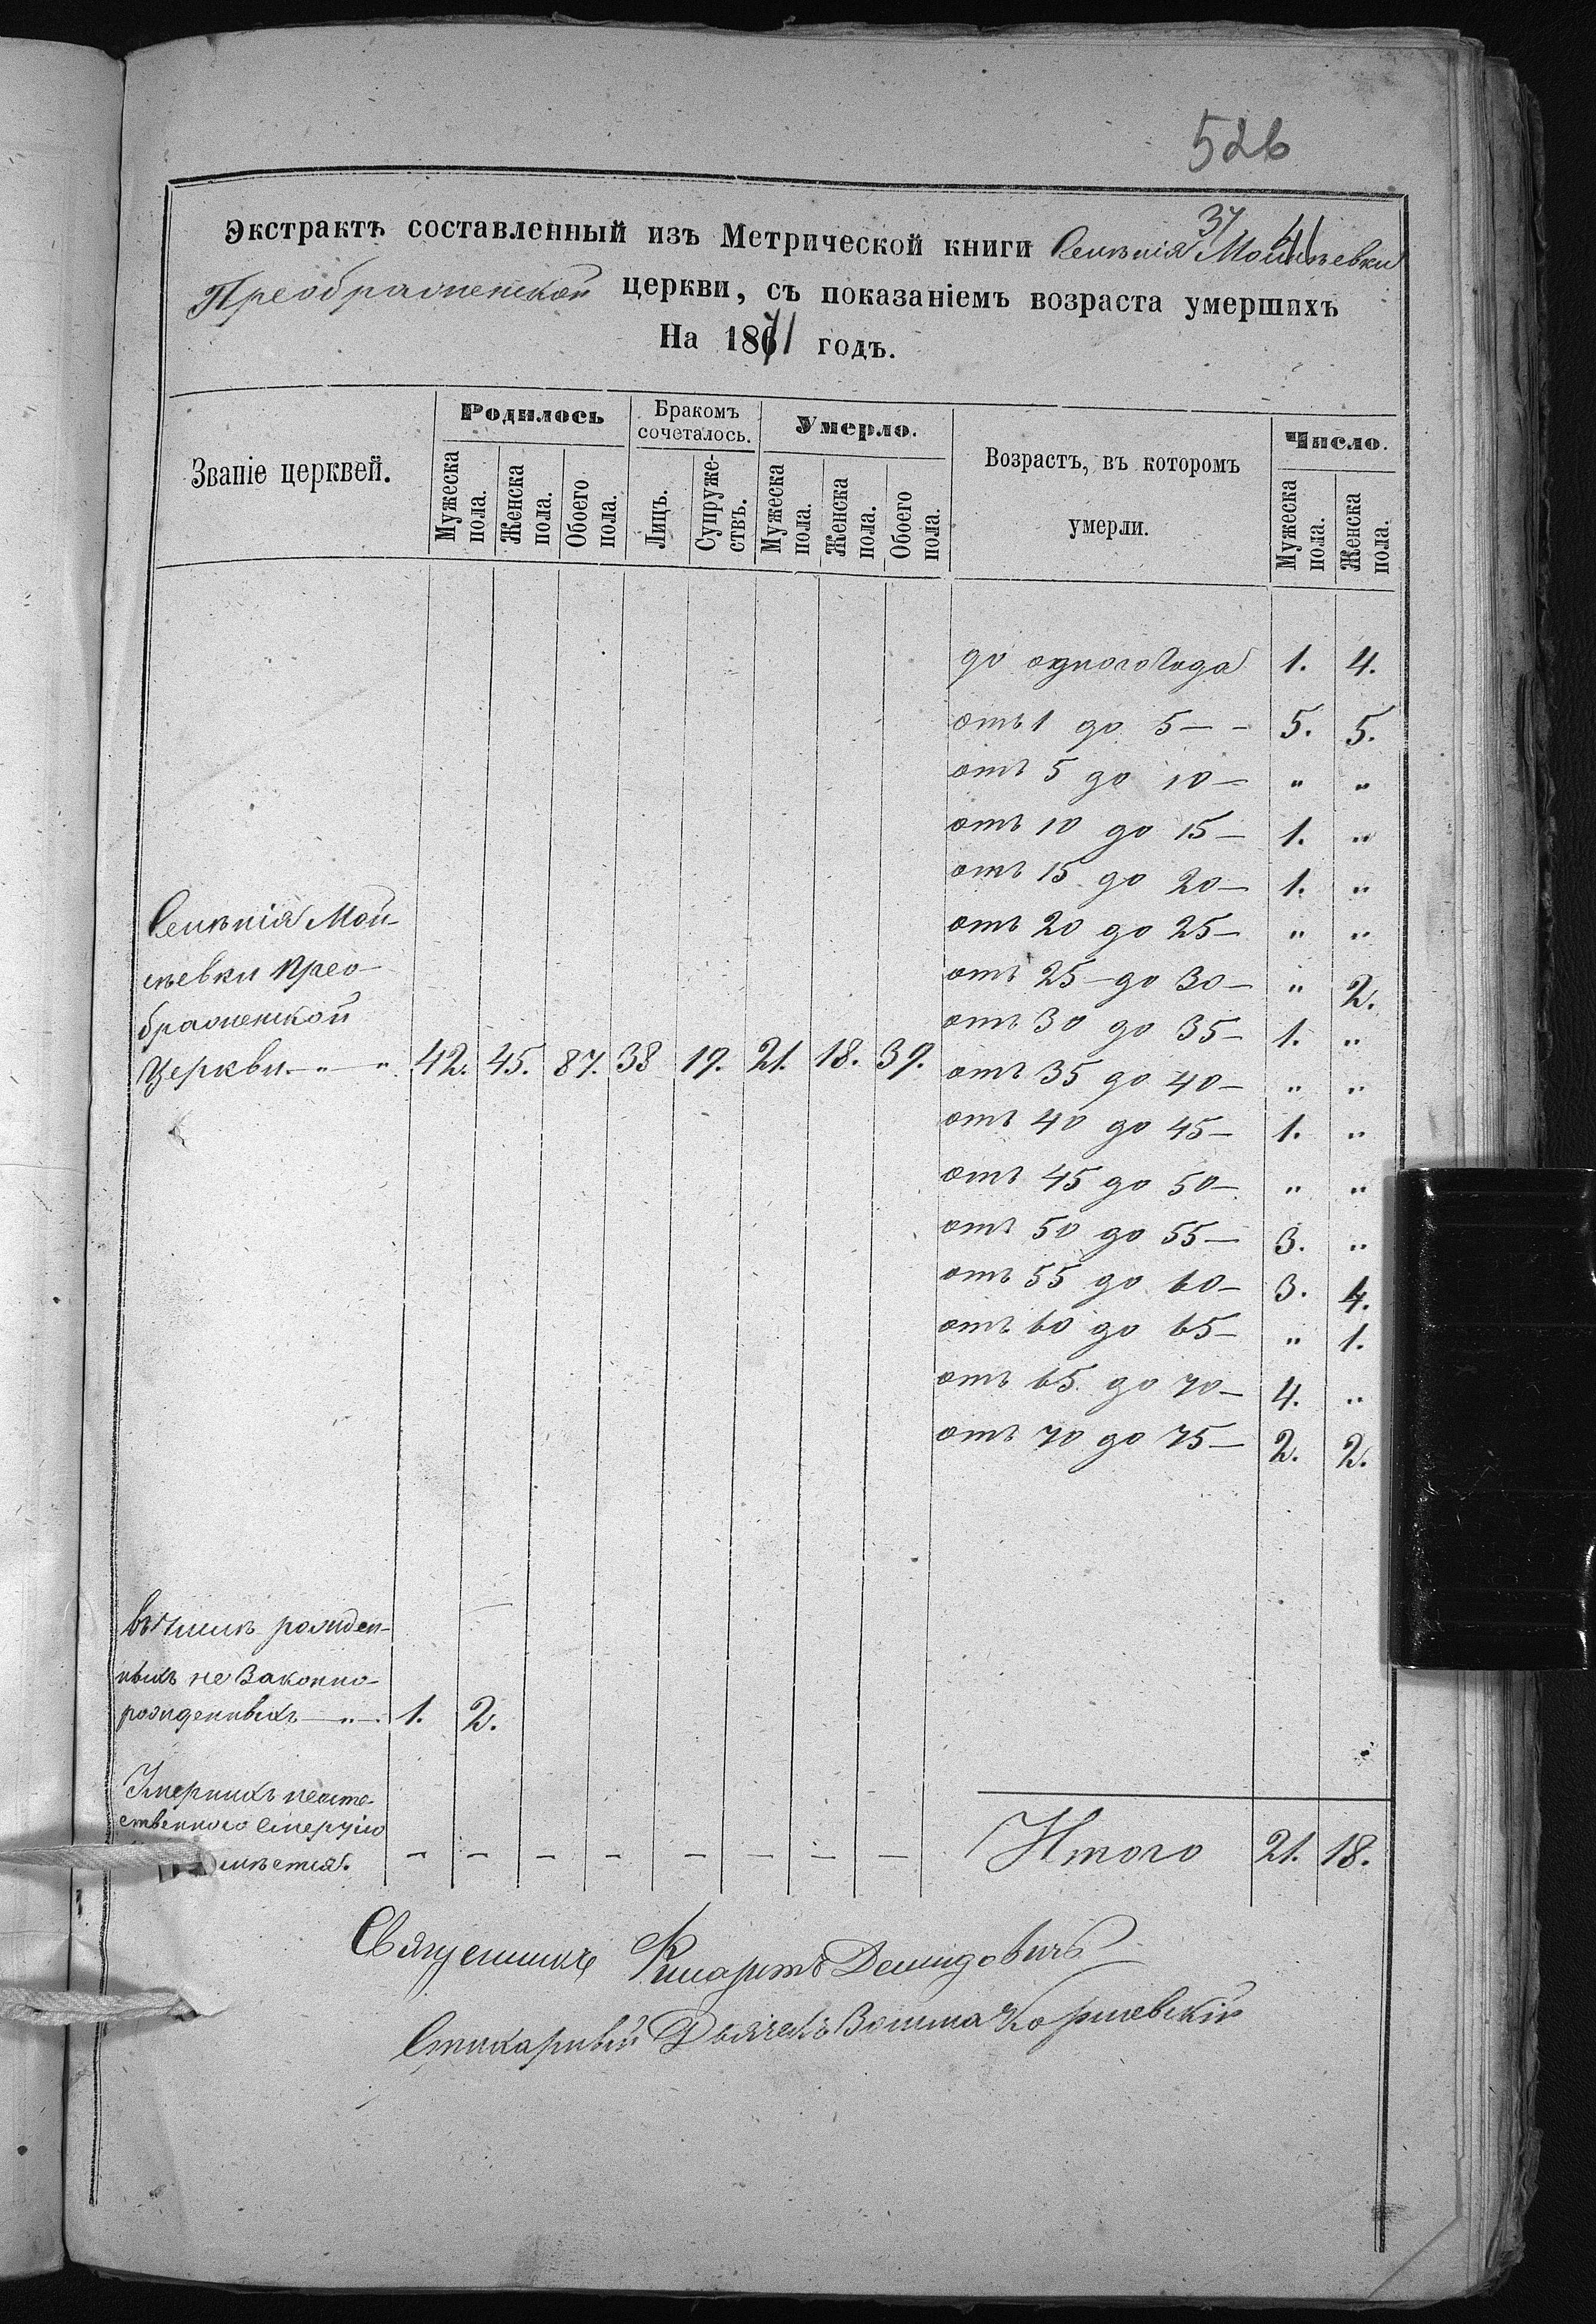 526
37 41
Экстрактъ составленный изъ Метрической книги Селенія Мойсѣевки
Преображенской церкви, съ показаніемъ возраста умершихъ
На 1871 годъ.
Званіе церквей.
Родилось
Бракомъ сочеталось.
Умерло.
Возрастъ, въ которомъ умерли.
Число.
Мужеска пола.
Женска пола.
Обоего пола.
Лицъ.
Супружествъ.
Мужеска пола.
Женска пола.
Обоего пола.
Мужеска пола.
Женска пола.
до одного года 1. 4.
отъ 1 до 5 — - 5. 5.
отъ 5 до 10 — " "
отъ 10 до 15 — 1. "
отъ 15 до 20 — 1. "
отъ 20 до 25 — " "
отъ 25 — до 30 — " 2.
отъ 30 до 35 — 1. "
отъ 35 до 40 — " "
отъ 40 до 45 — 1. "
отъ 45 до 50 — " "
отъ 50 до 55 — 3. "
отъ 55 до 60 — 3. 4.
отъ 60 до 65 — " 1.
отъ 65 до 70 — 4. "
отъ 70 до 75 — 2. 2.
Селѣнія Мой-
сѣевки Прео-
браженской
Церкви. - " - " 42. 45. 87. 38 19. 21. 18. 39.
въ числѣ рожден-
ныхъ не Законно-
рожденныхъ — " — . 1. 2.
Умершихъ неесте-
ственного смертію
- - - - - - - -
Итого 21. 18.
Священникъ Демидовичъ
Стихарный Дьячекъ Коржевскій